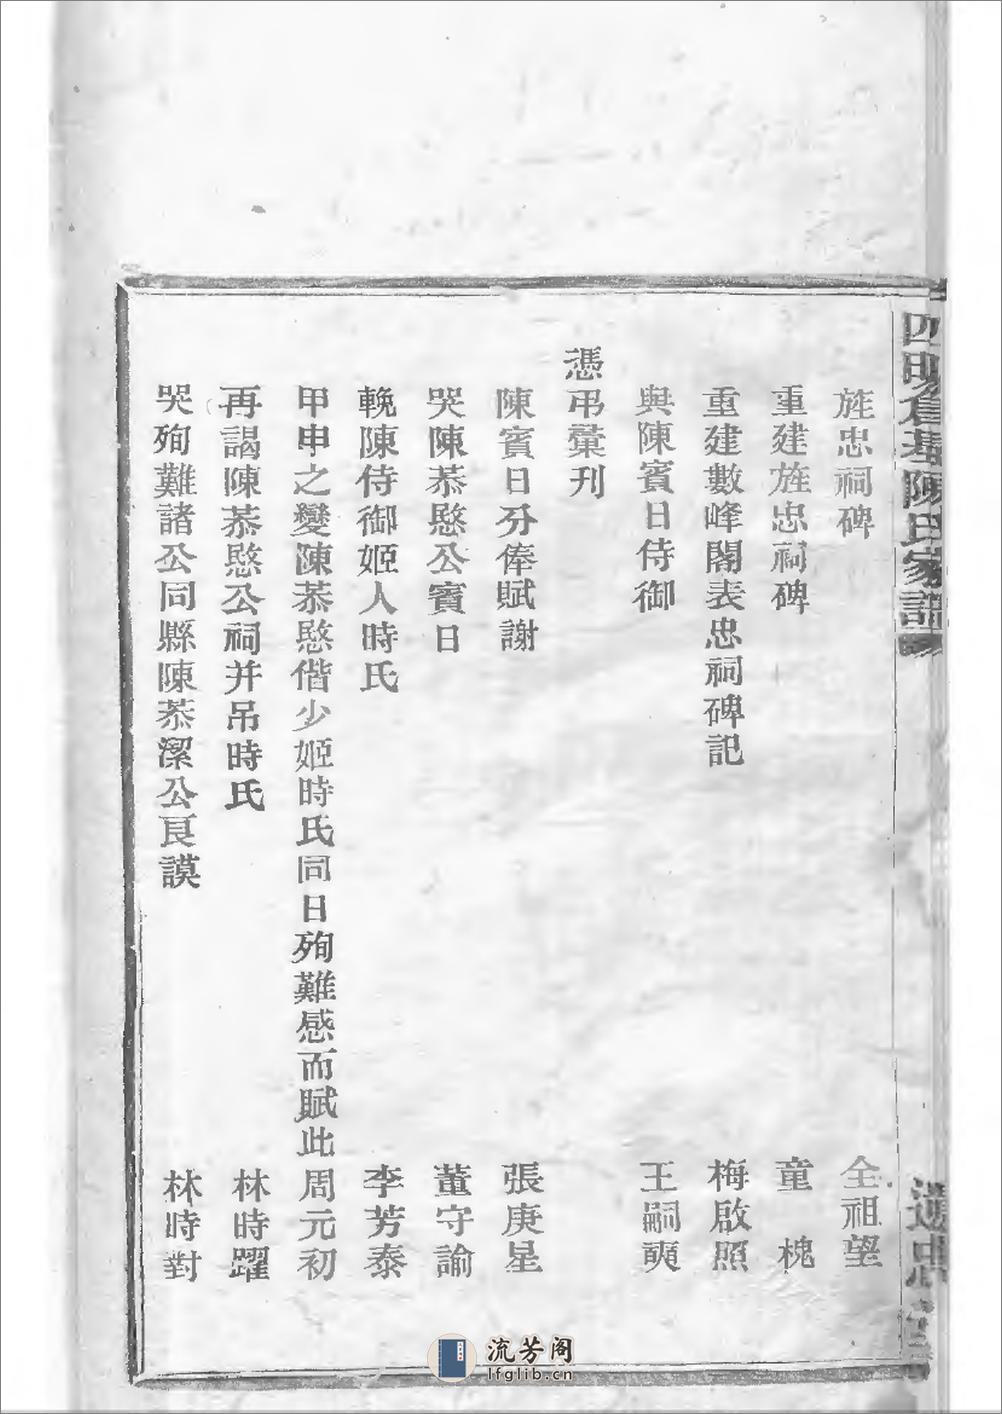 四明倉基陳氏家譜
旌忠祠碑 全祖望
重建旌忠祠碑 童槐
重建數峰閣表忠祠碑記 梅啟照
與陳賓日侍御 王嗣奭
憑弔彙刊
陳賓日分俸賦謝 張庚星
哭陳恭愍公賓日 董守諭
輓陳侍御姬人時氏 李芳泰
甲申之變陳恭愍偕少姬時氏同日殉難感而賦此 周元初
再謁陳恭愍公祠并吊時氏 林時躍
哭殉難諸公同縣陳恭潔公良謨 林時對
流芳阁
lfglib.cn